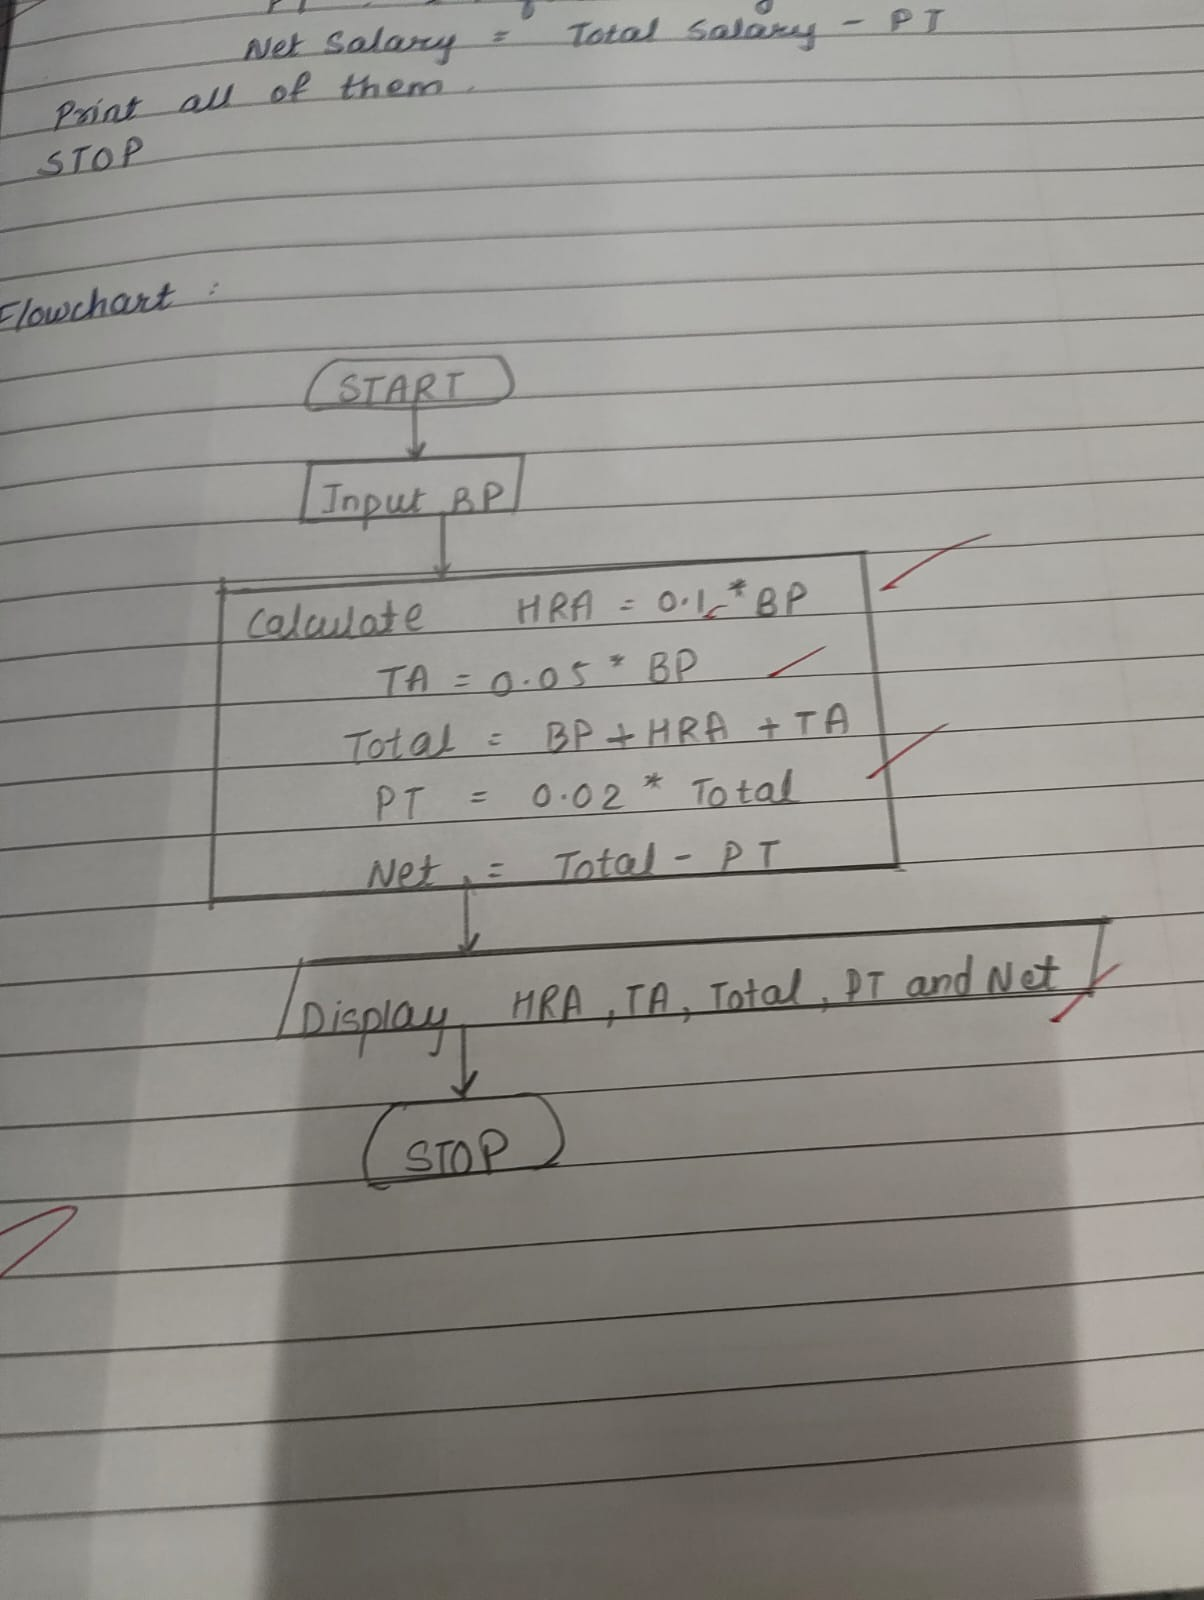 Net Salary = Total Salary - PT
Print all of them.
STOP
Flowchart :
START
Input BP
Calculate HRA = 0.1 * BP
TA = 0.05 * BP
Total = BP + HRA + TA
PT = 0.02 * Total
Net = Total - PT
Display HRA, TA, Total, PT and Net
STOP